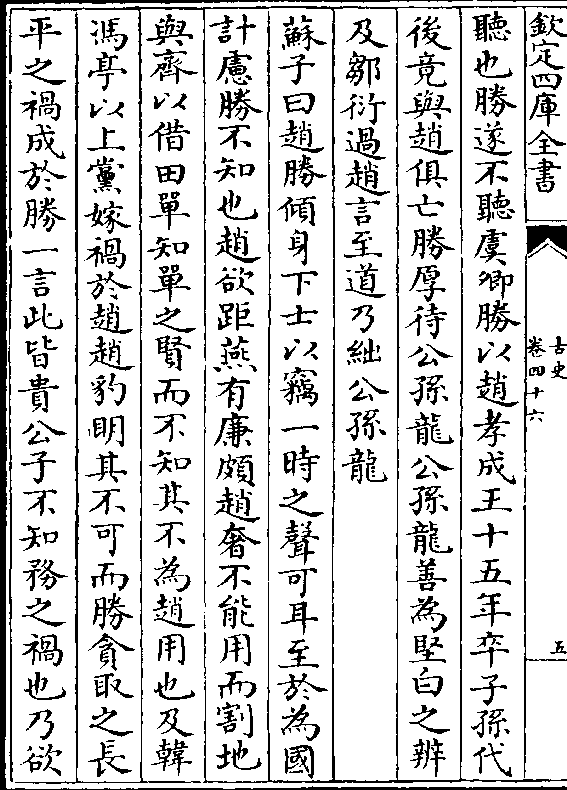 欽定四庫全書
古史
卷四十六
五
聽也勝遂不聽虞卿勝以趙孝成王十五年卒子孫代
後竟與趙俱亡勝厚待公孫龍公孫龍善為堅白之辨
及鄒衍過趙言至道乃絀公孫龍
蘇子曰趙勝傾身下士以竊一時之聲可耳至於為國
計慮勝不知也趙欲距燕有廉頗趙奢不能用而割地
與齊以借田單知單之賢而不知其不為趙用也及韓
馮亭以上黨嫁禍於趙趙豹明其不可而勝貪取之長
平之禍成於勝一言此皆貴公子不知務之禍也乃欲